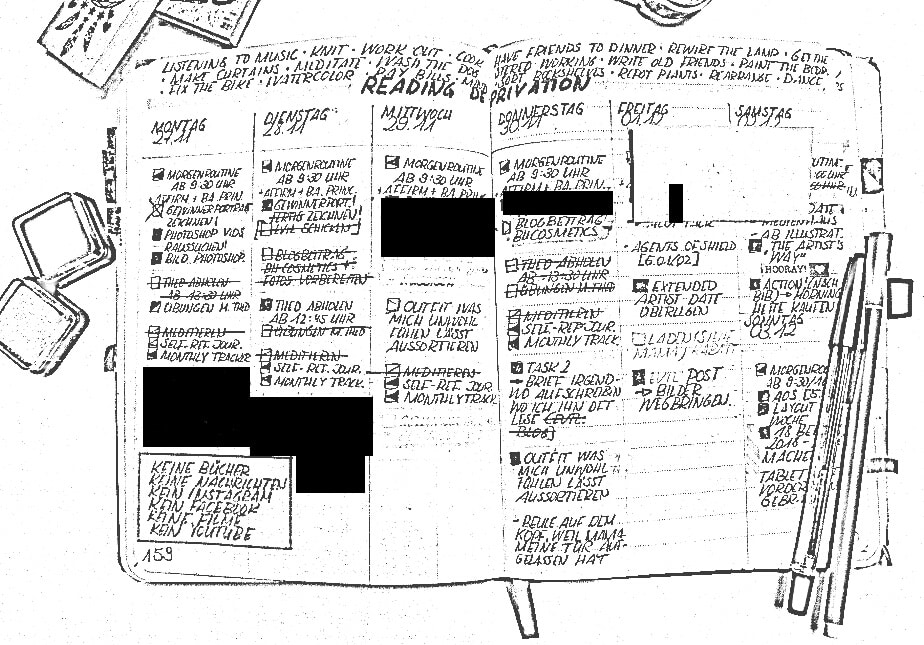 LISTENING TO MUSIC · KNIT · WORK OUT · COOK
· MAKE CURTAINS · MEDITATE · WASH THE DOG
· FIX THE BIKE · WATERCOLOR · PAY BILLS ·
HAVE FRIENDS TO DINNER · REWIRE THE LAND · GET THE
STEREO WORKING · WRITE OLD FRIENDS · PAINT THE BEDR.
SORT BOOKSHELVES · REPOT PLANTS · REARRANGE · DANCE
READING DEPRIVATION
MONTAG
27.11
MORGENROUTINE
AB 9:30 UHR
AFFIRM + BA. PRIN.
GEWINNERPORTRAIT
ZEICHNEN!
PHOTOSHOP VIDS
RAUSSUCHEN!
BILD. PHOTOSHOP.
THEO ABHOLEN
AB 12:30 UHR
ÜBUNGEN M. THEO
MEDITIEREN
SELF-REF. JOUR.
MONTHLY TRACKER
KEINE BÜCHER
KEINE NACHRICHTEN
KEIN INSTAGRAM
KEIN FACEBOOK
KEINE FILME
KEIN YOUTUBE
159
DIENSTAG
28.11
MORGENROUTINE
AB 9:30 UHR
AFFIRM + BA. PRINC.
GEWINNERPORT.!
FERTIG ZEICHNEN!
EVTL. SCHICKEN
BLOGBEITRAG
BH COSMETICS +
FOTOS VORBEREITEN
THEO ABHOLEN
AB 12:45 UHR
ÜBUNGEN M. THEO
MEDITIEREN
SELF-REF. JOUR.
MONTHLY TRACK.
MITTWOCH
29.11
MORGENROUTINE
AB 9:30 UHR
AFFIRM + BA. PRIN
OUTFIT WAS
MICH UNWOHL
FÜHLEN LÄSST
AUSSORTIEREN
MEDITIEREN
SELF-REF. JOUR.
MONTHLY TRACK
DONNERSTAG
30.11
MORGENROUTINE
AB 9:30 UHR
AFFIRM + BA. PRIN.
BLOGBEITRAG!
BHCOSMETICS
THEO ABHOLEN
AB 12:30 UHR
ÜBUNGEN M. THEO
MEDITIEREN
SELF-REF. JOUR.
MONTHLY TRACK
TASK 2
→ BRIEF IRGEND-
WO AUFSCHREIBN
WO ICH IHN OFT
LESE
BLOG)
OUTFIT WAS
MICH UNWOHL
FÜHLEN LÄSST
AUSSORTIEREN
- BEULE AUF DEM
KOPF, WEIL MAMA
MEINE TÜR AUF-
GELASSEN HAT
FREITAG
01.12
AGENTS OF SHIELD
EXTENDED
ARTIST DATE
ÜBERLEGEN
POST
→ BILDER
WEGBRINGEN.
SAMSTAG
AB ILLUSTRAT.
"THE ARTIST'S
WAY"
(HOORAY!
ACTION (NACH
HEFTE KAUFEN
SONNTAG
03.12
MORGENROU
AB 9:30
AOS
LAYOUT
WOCHE
18
2018 -
MACHE
TABLET
VORDER
GEBR